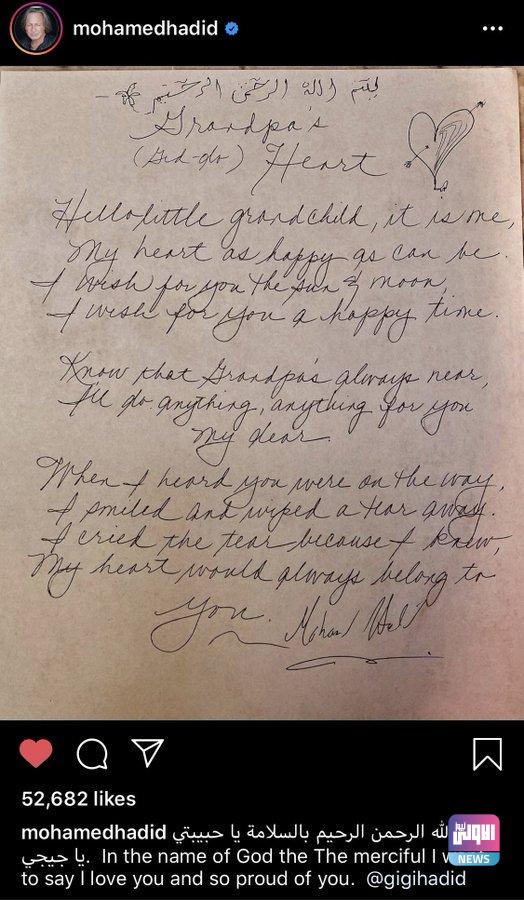 mohamedhadid
بسم الله الرحمن الرحيم
Grandpa's
(Gid-do) Heart
Hello little grandchild, it is me,
My heart as happy as can be.
I wish for you the sun & moon,
I wish for you a happy time.
Know that Grandpa's always near,
I'll do anything, anything for you
my dear.
When I heard you were on the way,
I smiled and wiped a tear away.
I cried the tear because I knew,
My heart would always belong to
you.
52,682 likes
mohamedhadid الله الرحمن الرحيم بالسلامة يا حبيبتي
يا جيجي. In the name of God the The merciful I
to say I love you and so proud of you. @gigihadid
الاولى نيوز
NEWS